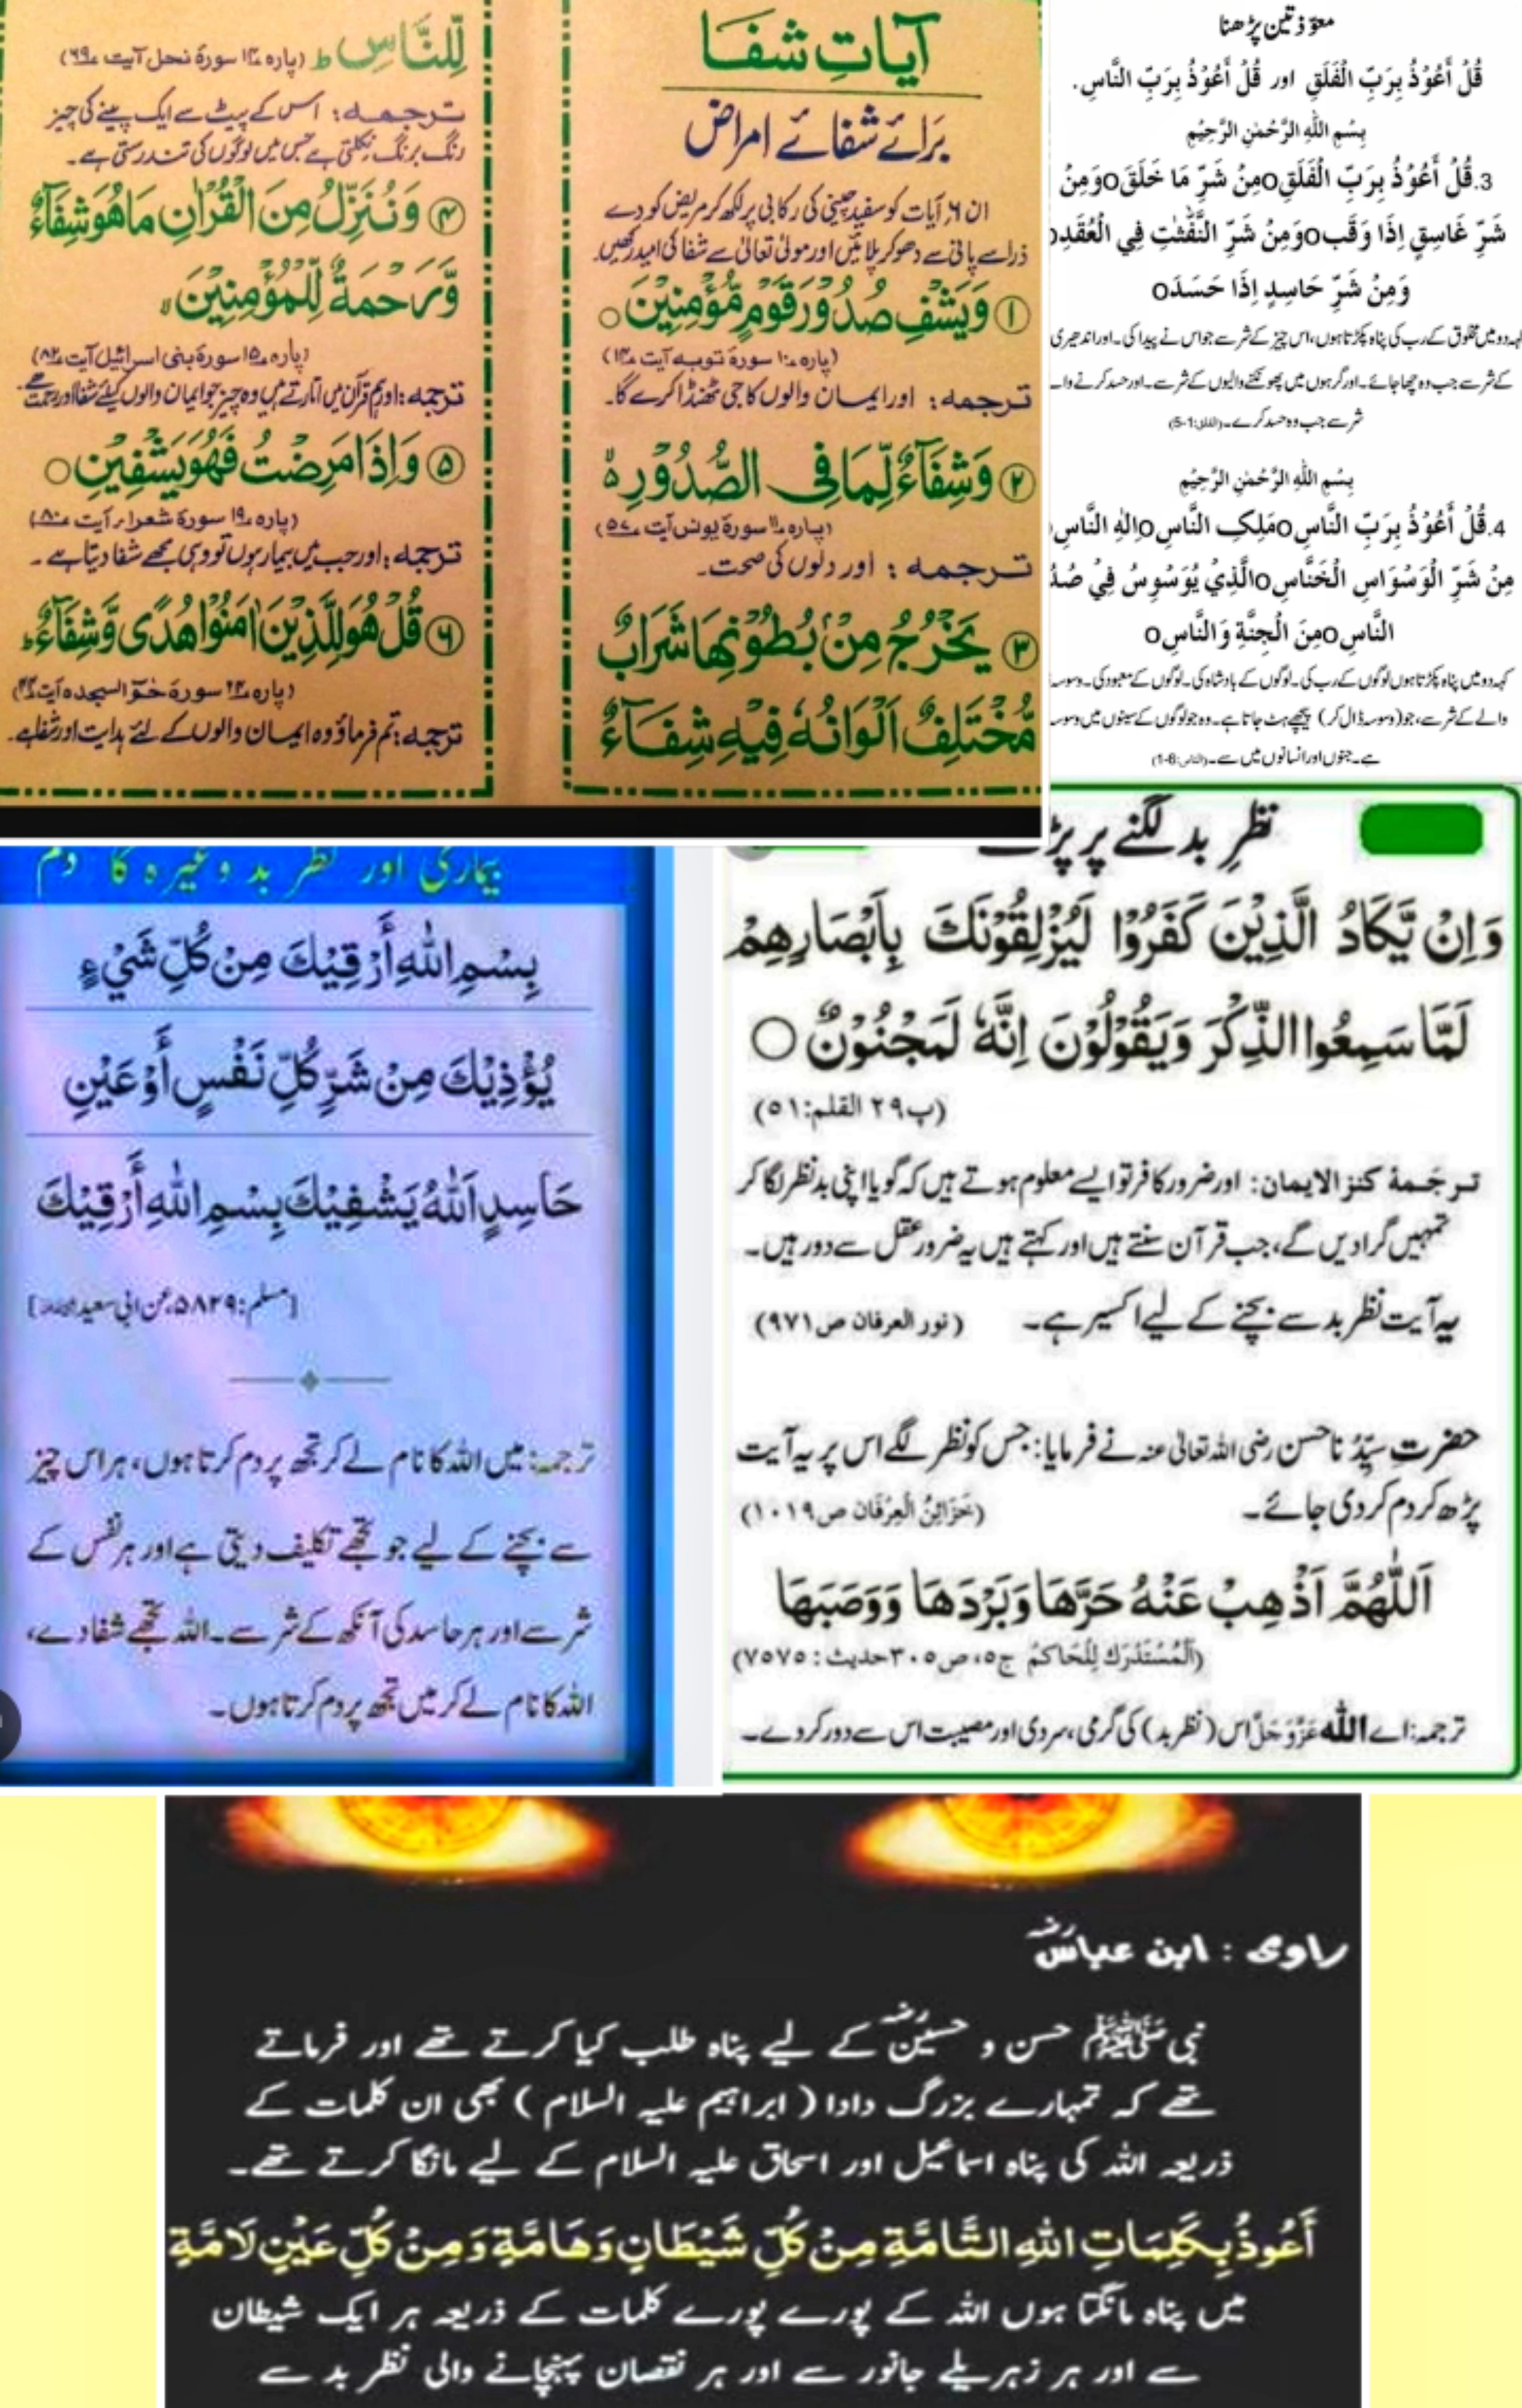 آیاتِ شفا
برائے شفائے امراض
ان ۶ آیات کو سفید چینی کی رکابی پر لکھ کر مریض کو دے
ذرا سے پانی سے دھو کر پلائیں اور مولیٰ تعالیٰ سے شفا کی امید رکھیں۔
① وَيَشْفِ صُدُوْرَ قَوْمٍ مُّؤْمِنِيْنَ ○
(پارہ ۱۰ سورۃ توبہ آیت ۱۴)
ترجمہ: اور ایمان والوں کا جی ٹھنڈا کرے گا۔
② وَشِفَآءٌ لِّمَا فِى الصُّدُوْرِ ہ
(پارہ ۱۱ سورۃ یونس آیت ۵۷)
ترجمہ: اور دلوں کی صحت۔
③ يَخْرُجُ مِنْۢ بُطُوْنِهَا شَرَابٌ
مُّخْتَلِفٌ اَلْوَانُهٗ فِيْهِ شِفَآءٌ
لِّلنَّاسِ ط (پارہ ۱۴ سورۃ نحل آیت ۶۹)
ترجمہ: اس کے پیٹ سے ایک پینے کی چیز
رنگ برنگ نکلتی ہے جس میں لوگوں کی تندرستی ہے۔
④ وَنُنَزِّلُ مِنَ الْقُرْاٰنِ مَا هُوَ شِفَآءٌ
وَّرَحْمَةٌ لِّلْمُؤْمِنِيْنَ
(پارہ ۱۵ سورۃ بنی اسرائیل آیت ۸۲)
ترجمہ: اور ہم قرآن میں اتارتے ہیں وہ چیز جو ایمان والوں کیلئے شفا اور رحمت ہے۔
⑤ وَاِذَا مَرِضْتُ فَهُوَ يَشْفِيْنِ ○
(پارہ ۱۹ سورۃ شعراء آیت ۸۰)
ترجمہ: اور جب میں بیمار ہوں تو وہی مجھے شفا دیتا ہے۔
⑥ قُلْ هُوَ لِلَّذِيْنَ اٰمَنُوْا هُدًى وَّشِفَآءٌ ط
(پارہ ۲۴ سورۃ حٰمٓ السجدہ آیت ۴۴)
ترجمہ: تم فرماؤ وہ ایمان والوں کے لئے ہدایت اور شفا ہے۔
معوّذتین پڑھنا
قُلْ أَعُوْذُ بِرَبِّ الْفَلَقِ اور قُلْ أَعُوْذُ بِرَبِّ النَّاسِ.
بِسْمِ اللّٰهِ الرَّحْمٰنِ الرَّحِيْمِ
3.قُلْ أَعُوْذُ بِرَبِّ الْفَلَقِoمِنْ شَرِّ مَا خَلَقَoوَمِنْ
شَرِّ غَاسِقٍ اِذَا وَقَبَoوَمِنْ شَرِّ النَّفّٰثٰتِ فِي الْعُقَدِo
وَمِنْ شَرِّ حَاسِدٍ اِذَا حَسَدَo
کہہ دو میں مخلوق کے رب کی پناہ پکڑتا ہوں، اس چیز کے شر سے جو اس نے پیدا کی۔ اور اندھیری
کے شر سے جب وہ چھا جائے۔ اور گرہوں میں پھونکنے والیوں کے شر سے۔ اور حسد کرنے والے
شر سے جب وہ حسد کرے۔ (الفلق:1-5)
بِسْمِ اللّٰهِ الرَّحْمٰنِ الرَّحِيْمِ
4.قُلْ أَعُوْذُ بِرَبِّ النَّاسِoمَلِكِ النَّاسِoاِلٰهِ النَّاسِ
مِنْ شَرِّ الْوَسْوَاسِ الْخَنَّاسِoالَّذِيْ يُوَسْوِسُ فِيْ صُدُ
النَّاسِoمِنَ الْجِنَّةِ وَالنَّاسِo
کہہ دو میں پناہ پکڑتا ہوں لوگوں کے رب کی۔ لوگوں کے بادشاہ کی۔ لوگوں کے معبود کی۔ وسوسہ
والے کے شر سے، جو (وسوسہ ڈال کر) پیچھے ہٹ جاتا ہے۔ وہ جو لوگوں کے سینوں میں وسوسہ
ہے۔ جنوں اور انسانوں میں سے۔ (الناس:1-6)
بیماری اور نظر بد وغیرہ کا دم
بِسْمِ اللهِ أَرْقِيْكَ مِنْ كُلِّ شَيْءٍ
يُؤْذِيْكَ مِنْ شَرِّ كُلِّ نَفْسٍ أَوْ عَيْنِ
حَاسِدٍ اَللهُ يَشْفِيْكَ بِسْمِ اللهِ أَرْقِيْكَ
[مسلم: ۵۸۲۹، عن ابی سعید]
ترجمہ: میں اللہ کا نام لے کر تجھ پر دم کرتا ہوں، ہر اس چیز
سے بچنے کے لیے جو تجھے تکلیف دیتی ہے اور ہر نفس کے
شر سے اور ہر حاسد کی آنکھ کے شر سے۔ اللہ تجھے شفا دے،
اللہ کا نام لے کر میں تجھ پر دم کرتا ہوں۔
نظرِ بد لگنے پر پڑ
وَاِنْ يَّكَادُ الَّذِيْنَ كَفَرُوْا لَيُزْلِقُوْنَكَ بِاَبْصَارِهِمْ
لَمَّا سَمِعُوا الذِّكْرَ وَيَقُوْلُوْنَ اِنَّهٗ لَمَجْنُوْنٌ ○
(پ۲۹ القلم:۵۱)
ترجَمۂ کنز الایمان: اور ضرور کافر تو ایسے معلوم ہوتے ہیں کہ گویا اپنی بد نظر لگا کر
تمہیں گرا دیں گے، جب قرآن سنتے ہیں اور کہتے ہیں یہ ضرور عقل سے دور ہیں۔
یہ آیت نظر بد سے بچنے کے لیے اکسیر ہے۔ (نور العرفان ص ۹۷۱)
حضرتِ سیِّدُنا حسن رضی اللہ تعالیٰ عنہ نے فرمایا: جس کو نظر لگے اس پر یہ آیت
پڑھ کر دم کر دی جائے۔ (خَزَائِنُ الْعِرْفَان ص ۱۰۱۹)
اَللّٰهُمَّ اَذْهِبْ عَنْهُ حَرَّهَا وَبَرْدَهَا وَوَصَبَهَا
(اَلْمُسْتَدْرَك لِلْحَاكِمُ ج۵، ص۳۰۵ حدیث: ۷۵۷۵)
ترجمہ: اے اللہ عَزَّوَجَلَّ اس (نظر بد) کی گرمی، سردی اور مصیبت اس سے دور کر دے۔
راوی : ابن عباسؓ
نبی ﷺ حسن و حسینؓ کے لیے پناہ طلب کیا کرتے تھے اور فرماتے
تھے کہ تمہارے بزرگ دادا ( ابراہیم علیہ السلام ) بھی ان کلمات کے
ذریعہ اللہ کی پناہ اسماعیل اور اسحاق علیہ السلام کے لیے مانگا کرتے تھے۔
أَعُوذُ بِكَلِمَاتِ اللهِ التَّامَّةِ مِنْ كُلِّ شَيْطَانٍ وَهَامَّةٍ وَمِنْ كُلِّ عَيْنٍ لَامَّةٍ
میں پناہ مانگتا ہوں اللہ کے پورے پورے کلمات کے ذریعہ ہر ایک شیطان
سے اور ہر زہریلے جانور سے اور ہر نقصان پہنچانے والی نظر بد سے